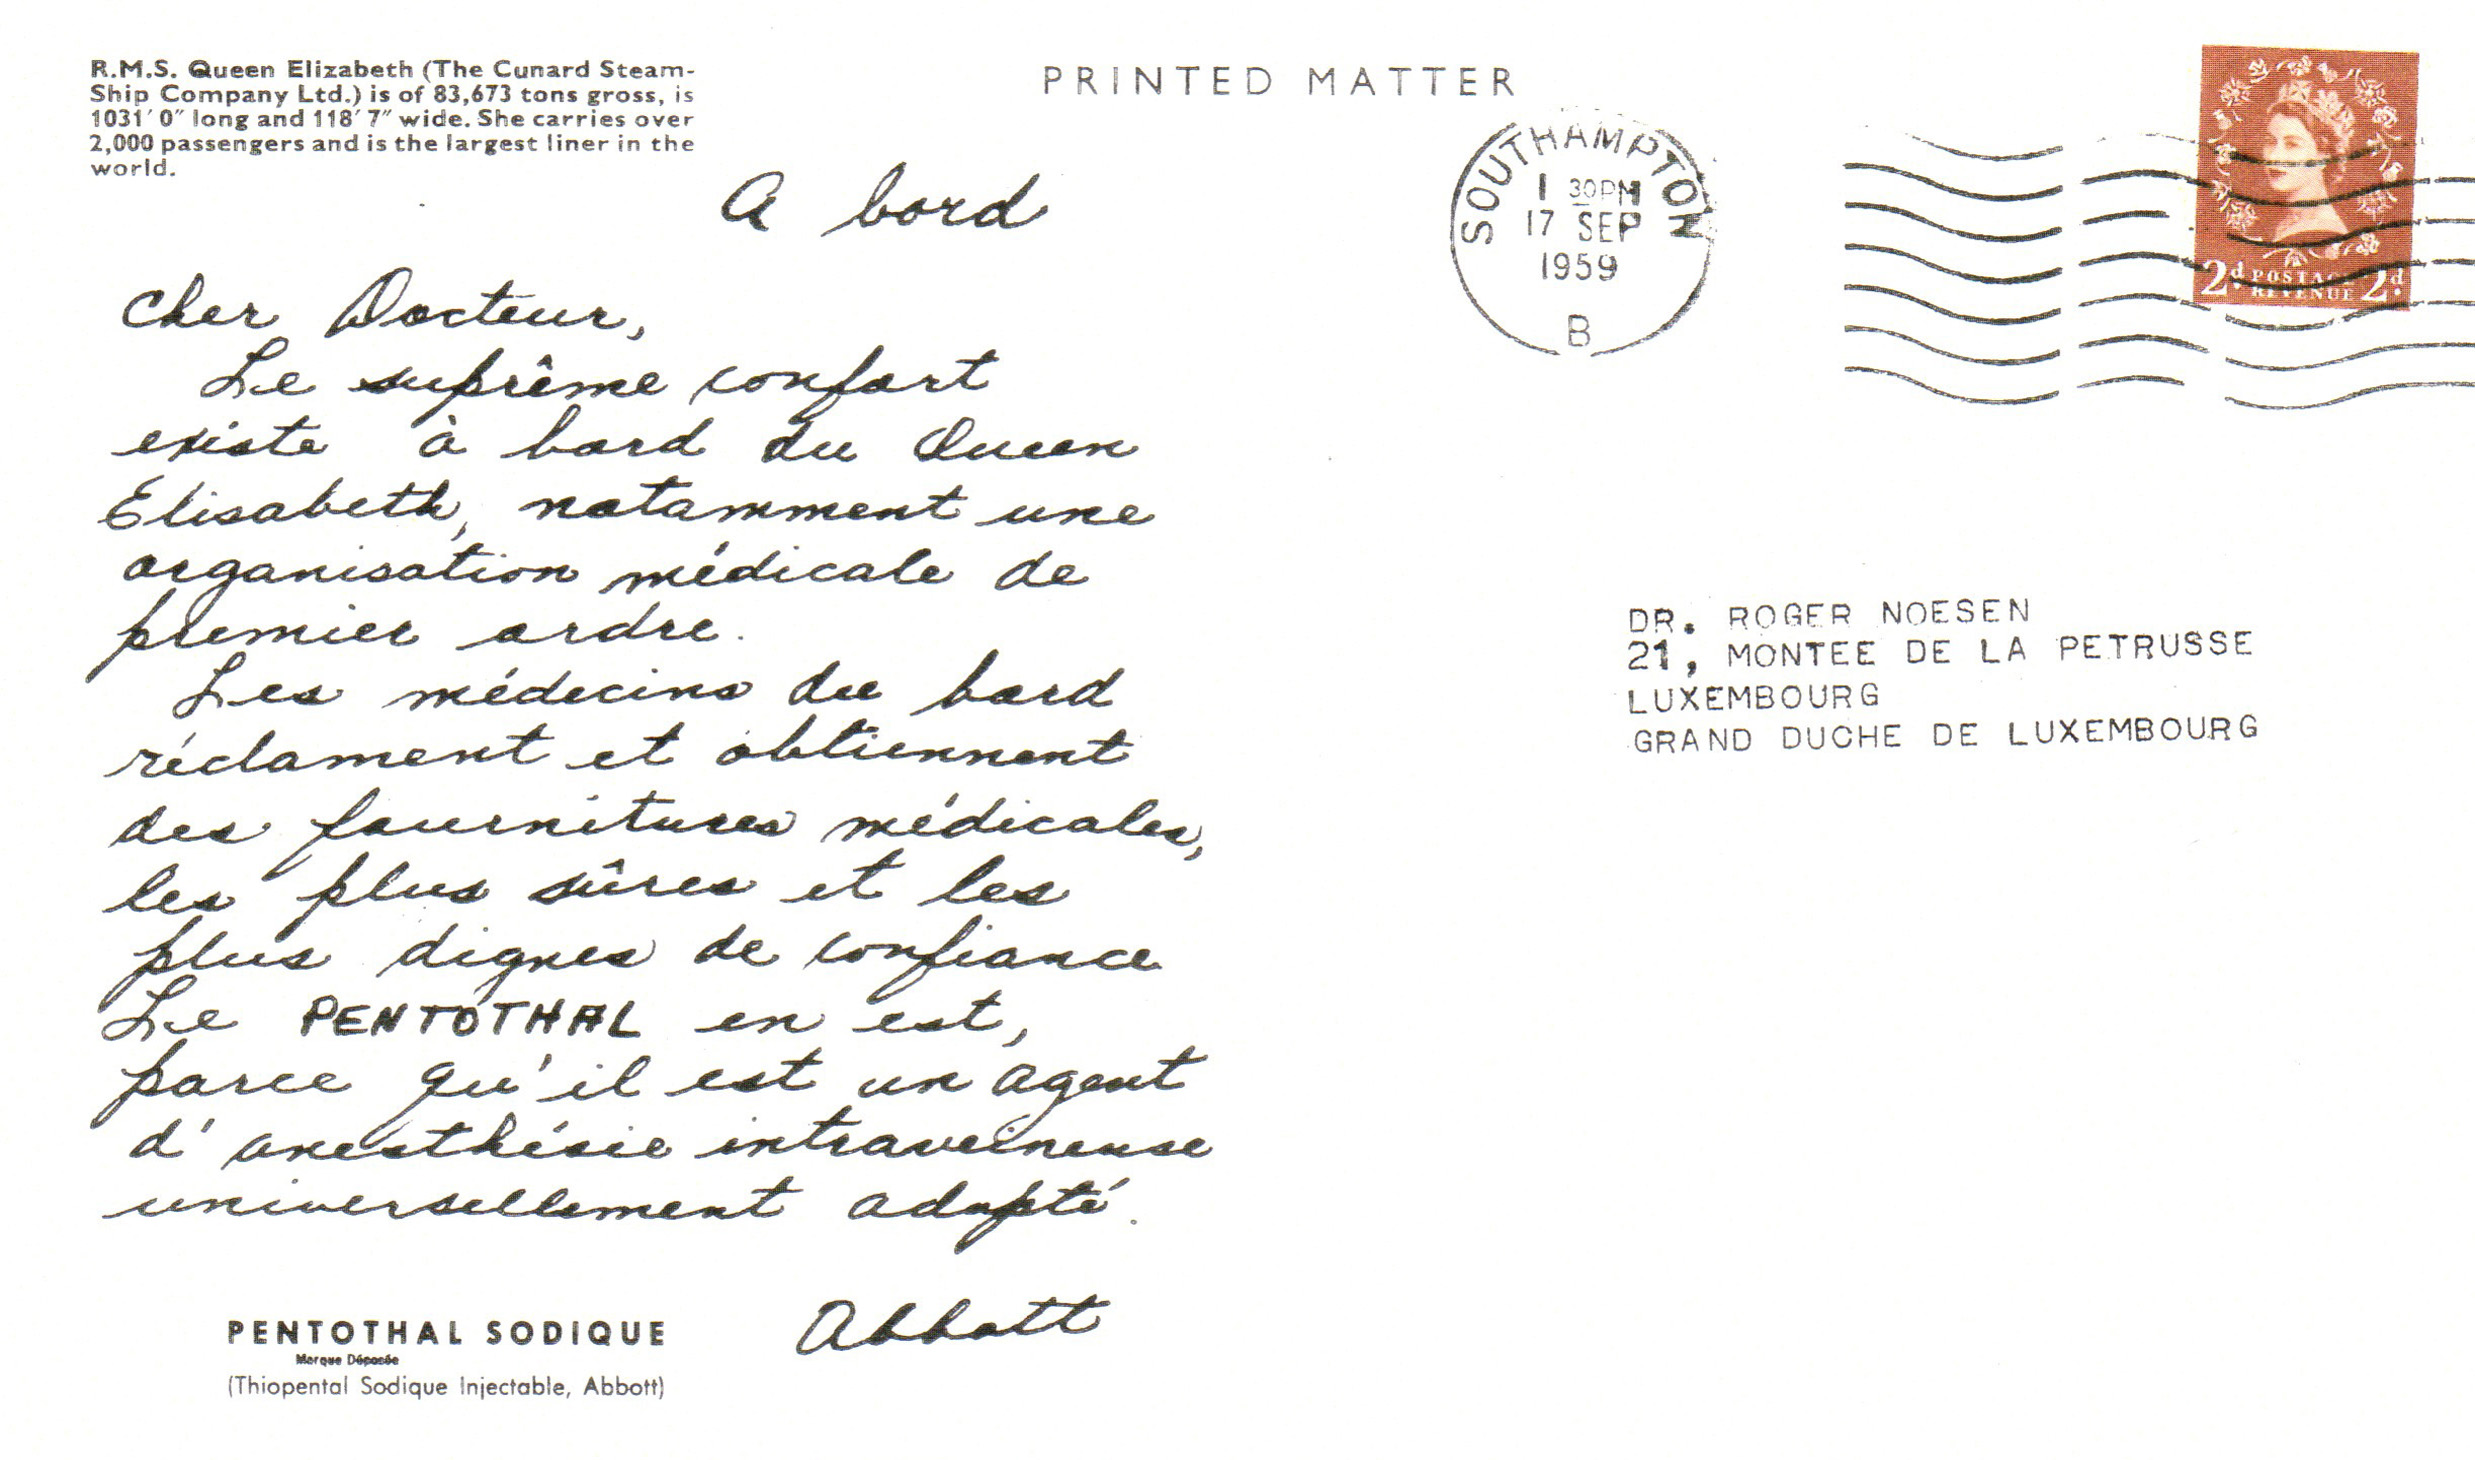 R.M.S. Queen Elizabeth (The Cunard Steam-
Ship Company Ltd.) is of 83,673 tons gross, is
1031' 0" long and 118' 7" wide. She carries over
2,000 passengers and is the largest liner in the
world.
PRINTED MATTER
SOUTHAMPTON
1 30PM
17 SEP
1959
B
2d POSTAGE 2d.
REVENUE
A bord
Cher Docteur,
Le suprême confort
existe à bord du Queen
Elisabeth, notamment une
organisation médicale de
premier ordre.
Les médecins du bord
réclament et obtiennent
des fournitures médicales,
les plus sûres et les
plus dignes de confiance
Le PENTOTHAL en est,
parce qu'il est un agent
d'anesthésie intraveineuse
universellement adopté.
Abbott
PENTOTHAL SODIQUE
Marque Déposée
(Thiopental Sodique Injectable, Abbott)
DR. ROGER NOESEN
21, MONTEE DE LA PETRUSSE
LUXEMBOURG
GRAND DUCHE DE LUXEMBOURG